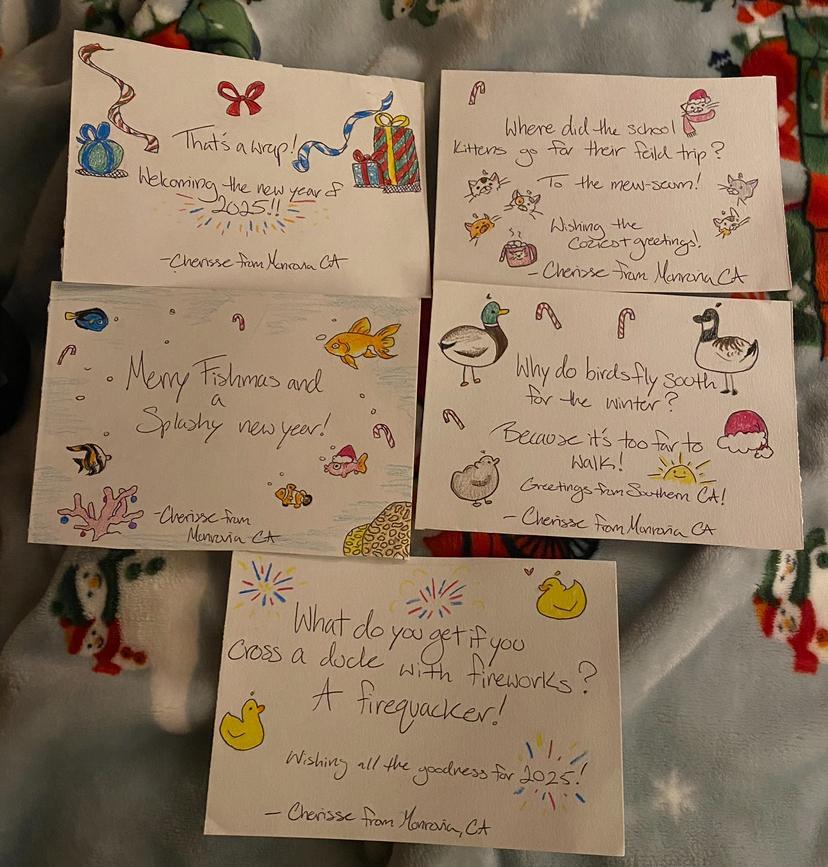 That's a wrap!
Welcoming the new year of
2025!!
-Cherisse from Monrovia CA
Where did the school
Kittens go for their feild trip?
To the mew-seum!
Wishing the
coziest greetings!
- Cherisse from Monrovia CA
Merry Fishmas and
a
Splashy new year!
-Cherisse from
Monrovia CA
Why do birds fly South
for the winter?
Because it's too far to
walk!
Greetings from Southern CA!
- Cherisse from Monrovia CA
What do you get if you
cross a duck with fireworks?
A firequacker!
Wishing all the goodness for 2025!
- Cherisse from Monrovia, CA